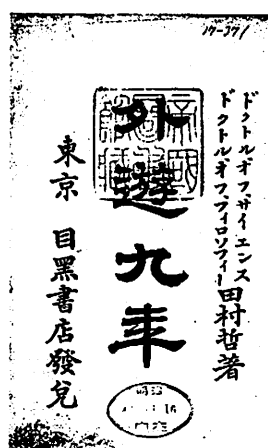 17-371
ドクトルオフサイエンス
ドクトルオフフィロソフィー
田村哲著
外遊九年
東京 目黑書店發兌